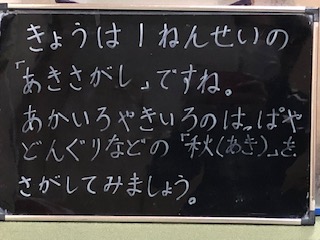 きょうは1ねんせいの
「あきさがし」ですね。
あかいろやきいろのはっぱや
どんぐりなどの「秋(あき)」を
さがしてみましょう。